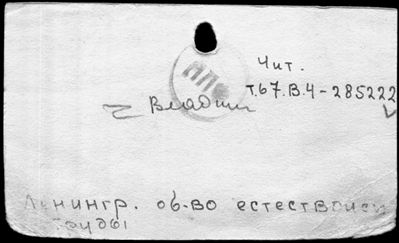 Чит.
ЛЛО
т.67.В.4-285222
Владим
Ленингр. об-во естествоисп
Труды